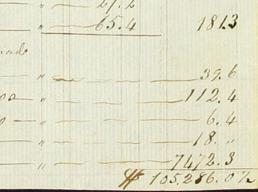 27.2
" 65.4 1813
" 39.6
" 112.4
" 6.4
" 18. "
" 7472.3
$ 105,286.0½